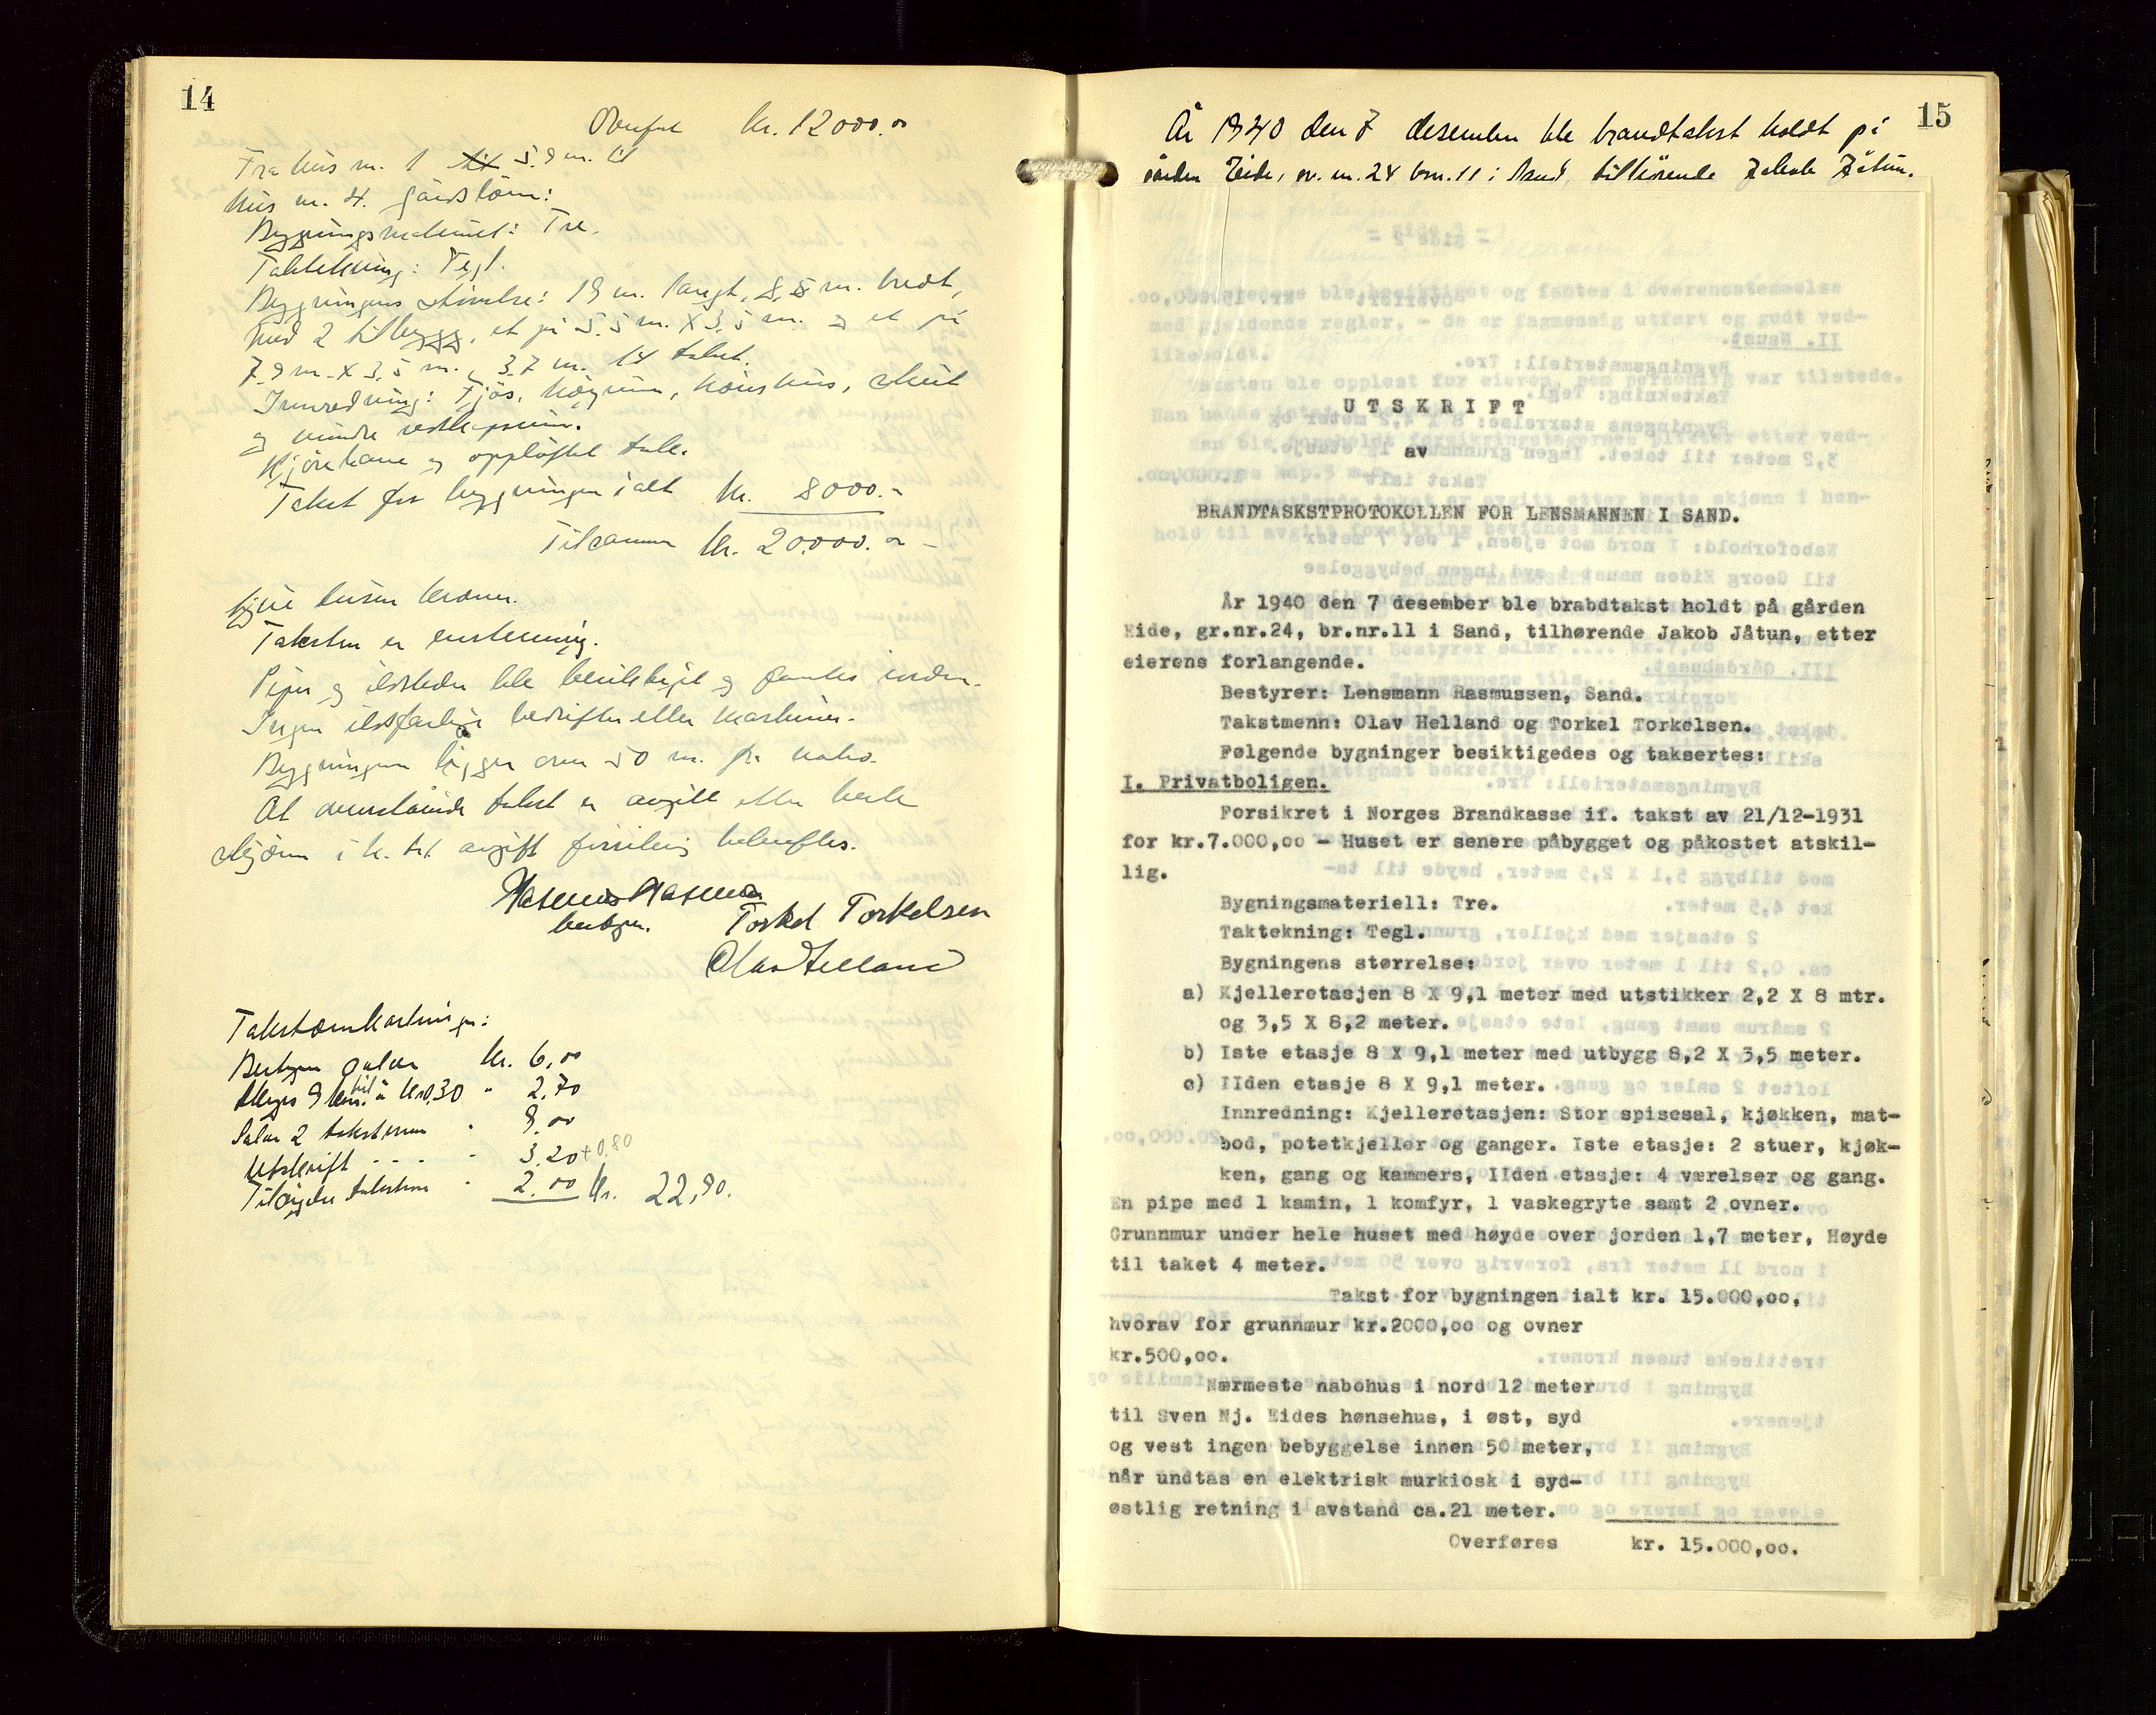 14
Overført kr. 12000.00
Fra hus nr. 1 5.9 m. til
hus nr. 4. gårdsløm:
Bygningsmateriel: Tre.
Taktekning: Tegl.
Bygningens størrelse: 19 m. langt, 8,8 m. bredt,
med 2 tilbygg, et på 5.5 m. X 3.5 m. og et på
7.9 m. X 3.5 m. 3.7 m. til taket.
Innredning: Fjøs, høyrum, hønshus, skut
og mindre redskapsrum.
Kjørebane og oppløftet tale.
Takst for bygningen ialt kr. 8000.-
Tilsammen kr. 20.000.00 -
tjue tusen kroner.
Taksten er enstemmig.
Piper og ildsteder ble besiktiget og fantes i orden.
Ingen ildsfarlige bedrifter eller maskiner.
Bygningene ligger over 50 m. fra nabo.
At ovenstående takst er avgitt etter beste
skjønn i h. t. avgitt forsikring bekreftes.
Rasmus Rasmussen
bestyrer. Torkel Torkelsen
Olav Helland
Takstomkostninger:
Bestyrer salær kr. 6,00
Skyss 9 km. til à kr 0,30 " 2,70
Salær 2 takstmenn " 9,00
Utskrift - - - " 3,20 + 0,80
Tilsigelse takstmenn " 2,00 kr. 22,90.
15
År 1940 den 7 desember ble brandtakst holdt på
gården Eide, gr. nr. 24 br.nr. 11 i Sand, tilhørende Jakob Jåtun.
UTSKRIFT
av
BRANDTASKSTPROTOKOLLEN FOR LENSMANNEN I SAND.
År 1940 den 7 desember ble brabdtakst holdt på gården
Eide, gr.nr.24, br.nr.11 i Sand, tilhørende Jakob Jåtun, etter
eierens forlangende.
Bestyrer: Lensmann Rasmussen, Sand.
Takstmenn: Olav Helland og Torkel Torkelsen.
Følgende bygninger besiktigedes og taksertes:
I. Privatboligen.
Forsikret i Norges Brandkasse if. takst av 21/12-1931
for kr.7.000,oo - Huset er senere påbygget og påkostet atskil-
lig.
Bygningsmateriell: Tre.
Taktekning: Tegl.
Bygningens størrelse:
a) Kjelleretasjen 8 X 9,1 meter med utstikker 2,2 X 8 mtr.
og 3,5 X 8,2 meter.
b) Iste etasje 8 X 9,1 meter med utbygg 8,2 X 3,5 meter.
c) IIden etasje 8 X 9,1 meter.
Innredning: Kjelleretasjen: Stor spisesal, kjøkken, mat-
bod, potetkjeller og ganger. Iste etasje: 2 stuer, kjøk-
ken, gang og kammers, IIden etasje: 4 værelser og gang.
En pipe med 1 kamin, 1 komfyr, 1 vaskegryte samt 2 ovner.
Grunnmur under hele huset med høyde over jorden 1,7 meter, Høyde
til taket 4 meter.
Takst for bygningen ialt kr. 15.000,oo,
hvorav for grunnmur kr.2000,oo og ovner
kr.500,oo.
Nærmeste nabohus i nord 12 meter
til Sven Nj. Eides hønsehus, i øst, syd
og vest ingen bebyggelse innen 50 meter,
når undtas en elektrisk murkiosk i syd-
østlig retning i avstand ca.21 meter.
Overføres kr. 15.000,oo.